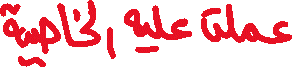 عملت عليه الخاصية